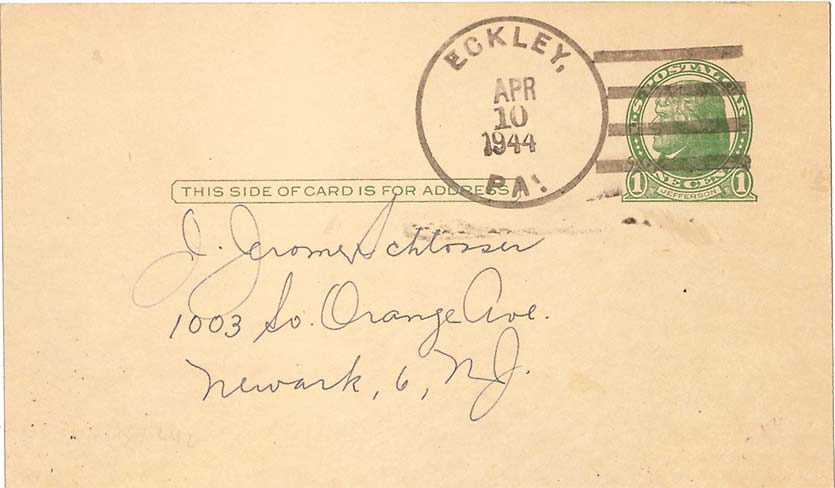 ECKLEY,
APR
10
1944
PA.
U.S. POSTAL CARD
ONE CENT
1 JEFFERSON 1
THIS SIDE OF CARD IS FOR ADDRESS
J. Jerome Schlosser
1003 So. Orange Ave.
Newark, 6, N.J.